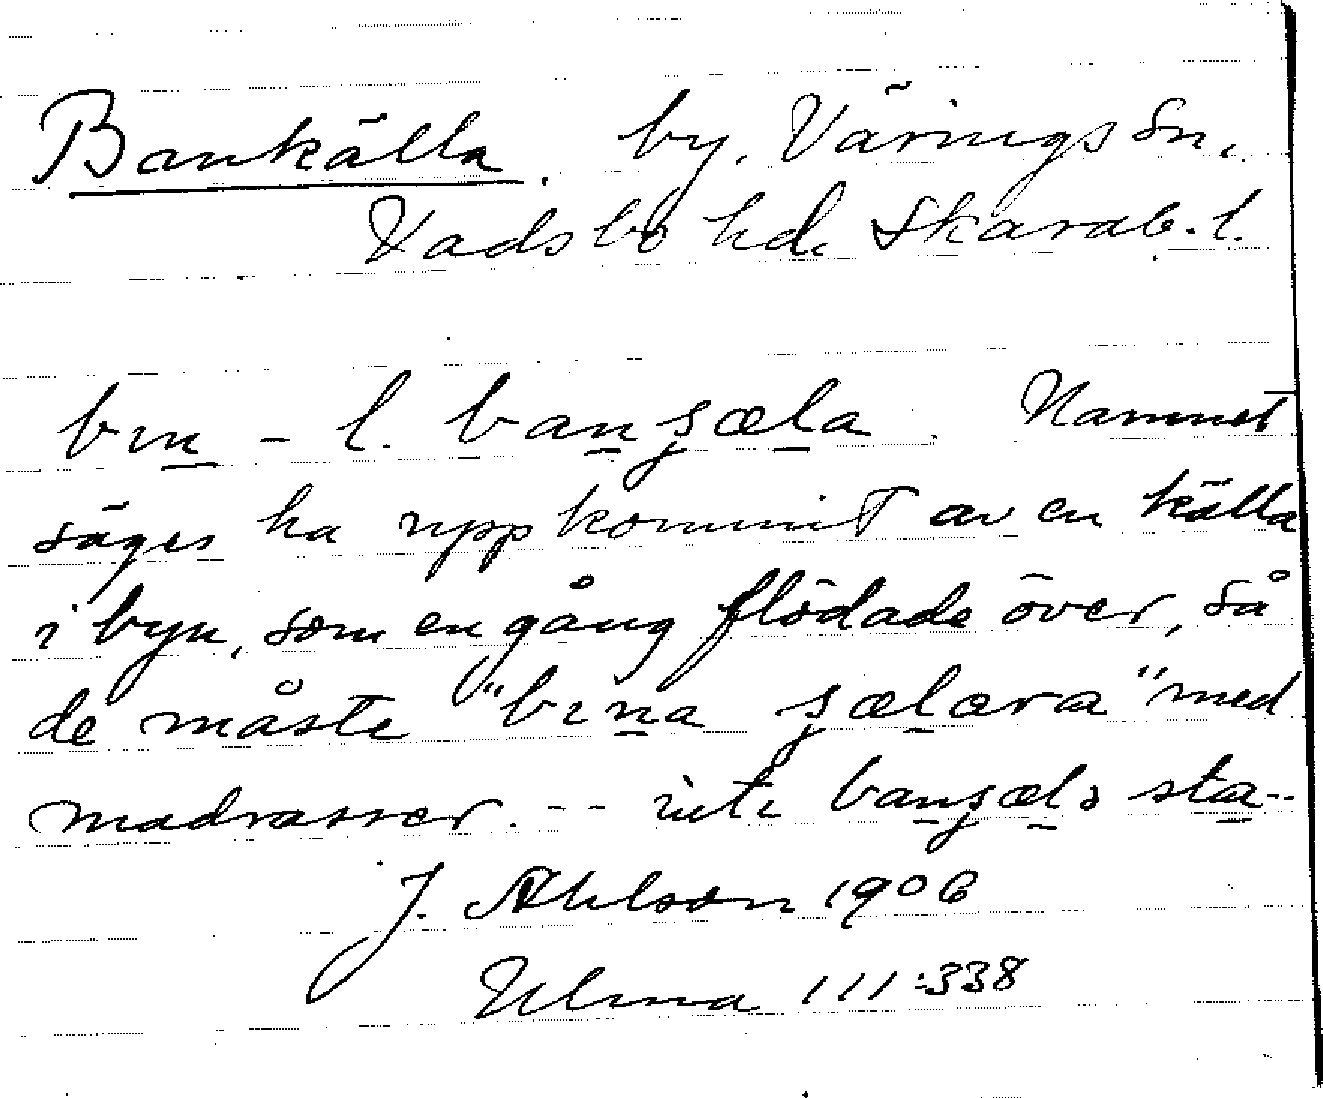 Bankälla. by. Värings sn,
Vadsbo hd. Skarab. l.
bın – l. banʂæla. Namnet
säges ha uppkommit av en källa
i byn, som en gång flödade över, så
de måste "bına ʂælæra" med
madrasser. -- inte banʂæls sta--
J. Ahlson 1906
Ulma 111:338